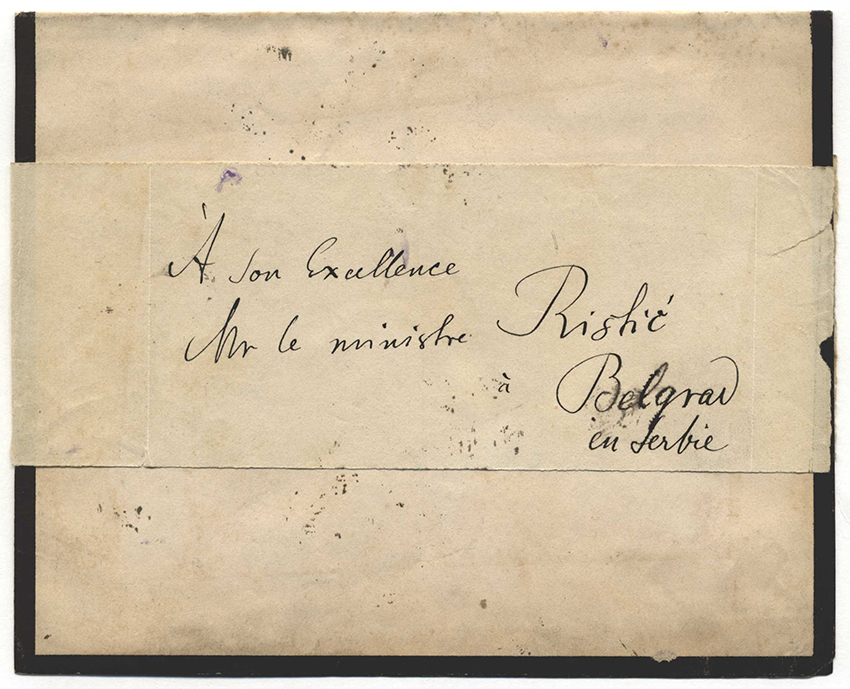 À son Excellence
Mr le ministre Ristić
à Belgrad
en Serbie